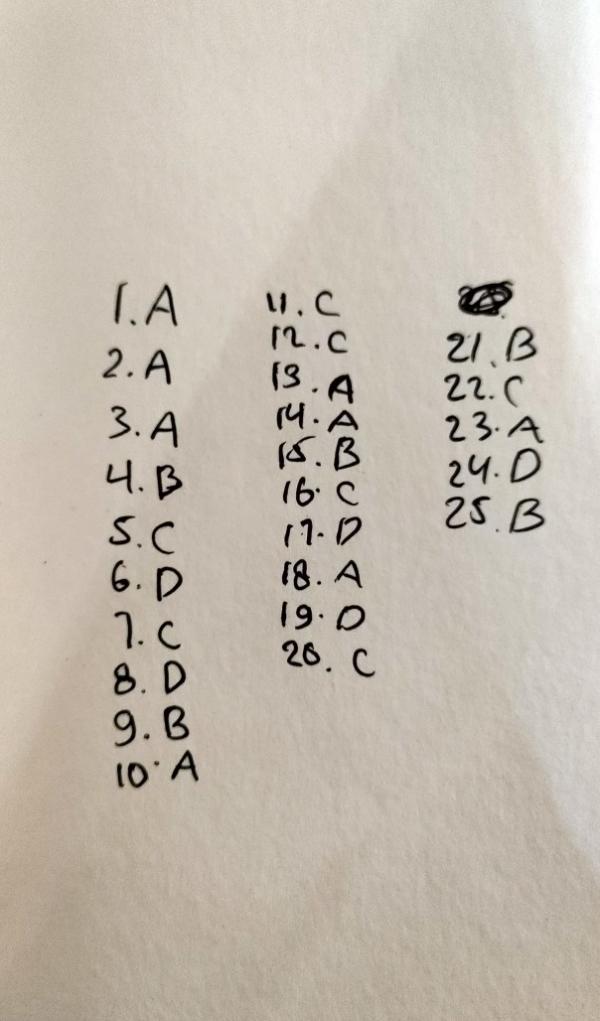 1. A
2. A
3. A
4. B
5. C
6. D
7. C
8. D
9. B
10. A
11. C
12. C
13. A
14. A
15. B
16. C
17. D
18. A
19. D
20. C
21. B
22. C
23. A
24. D
25. B